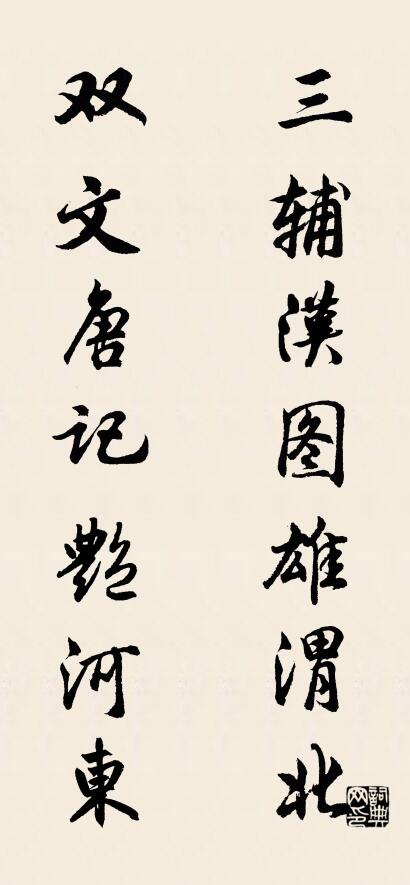 三辅漢图雄渭北
双文唐记艷河東
詞典网